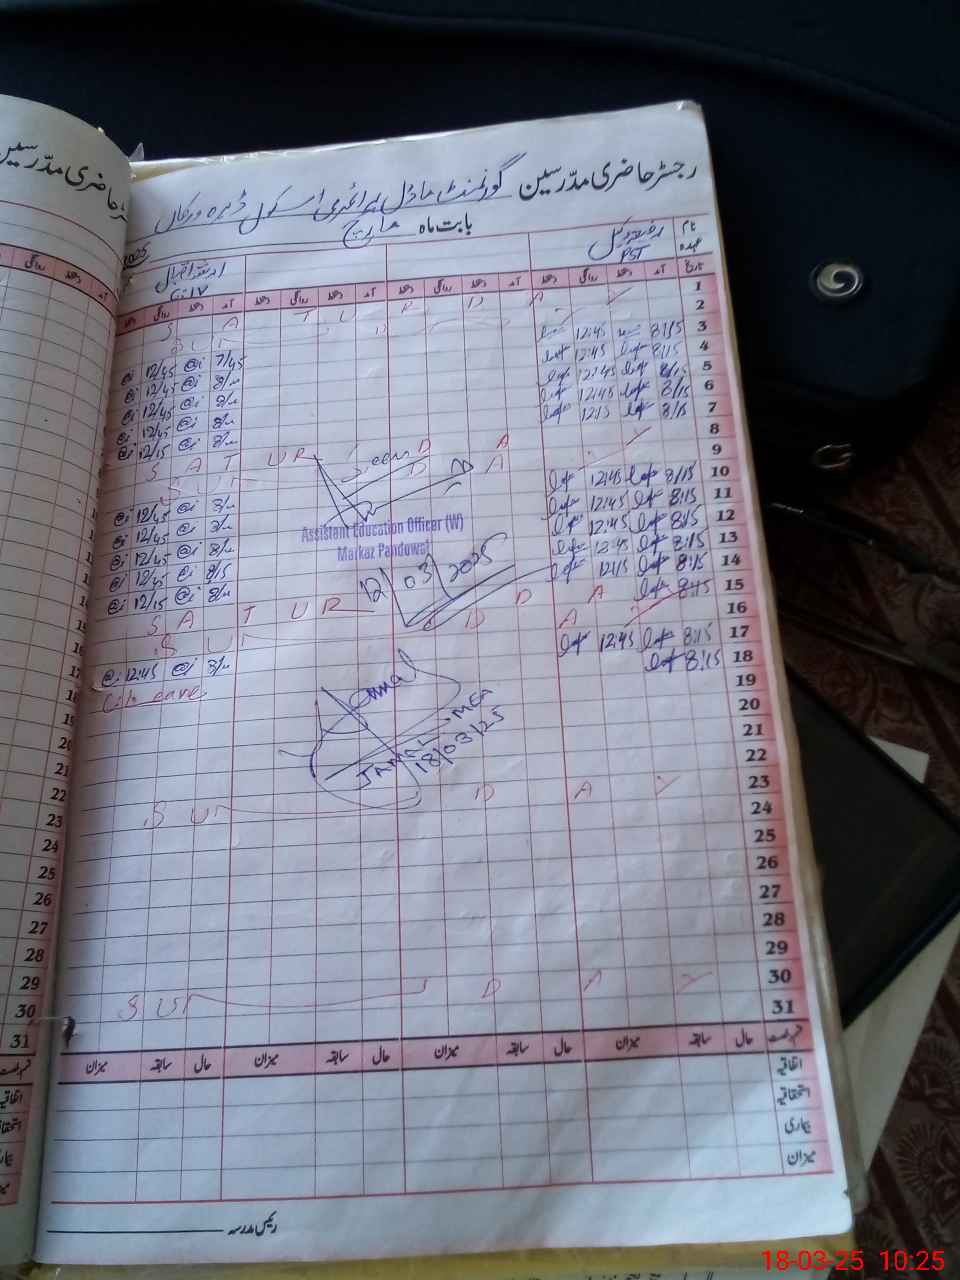 رجسٹر حاضری مدرسین گورنمنٹ ماڈل پرائمری اسکول ڈیرہ ورکاں
بابت ماہ مارچ 2025
نام
عہدہ
PST
تاریخ آمد دستخط روانگی دستخط آمد دستخط روانگی دستخط آمد دستخط روانگی دستخط آمد دستخط روانگی دستخط
1
2 S A T U R D A Y
3 8:15 12:45 7/45 12/45
4 8:15 12:45 8/- 12/45
5 8:15 12:45 8/- 12/45
6 8:15 12:45 8/- 12/45
7 8:15 12:15 8/- 12/15
8 S A T U R D A Y
9 S U N D A Y
10 8:15 12:45 8/- 12/45
11 8:15 12:45 8/- 12/45
12 8:15 12:45 8/- 12/45
13 8:15 12:45 8/5 12/45
14 8:15 12:15 8/- 12/15
15 8:15 S A T U R D A Y
16 S U N D A Y
17 8:15 12:45 8/- 12:45
18 8:15 C/Leave
19
20
21
22
23 S U N D A Y
24
25
26
27
28
29
30 S U N D A Y
31
Assistant Education Officer (W)
Markaz Pandowal
12/03/2025
Jamal
JAMAL - MEA
18/03/25
قسم رخصت حال سابقہ میزان حال سابقہ میزان حال سابقہ میزان حال سابقہ میزان
اتفاقیہ
استحقاقیہ
بیماری
میزان
رئیس مدرسہ
18-03-25 10:25